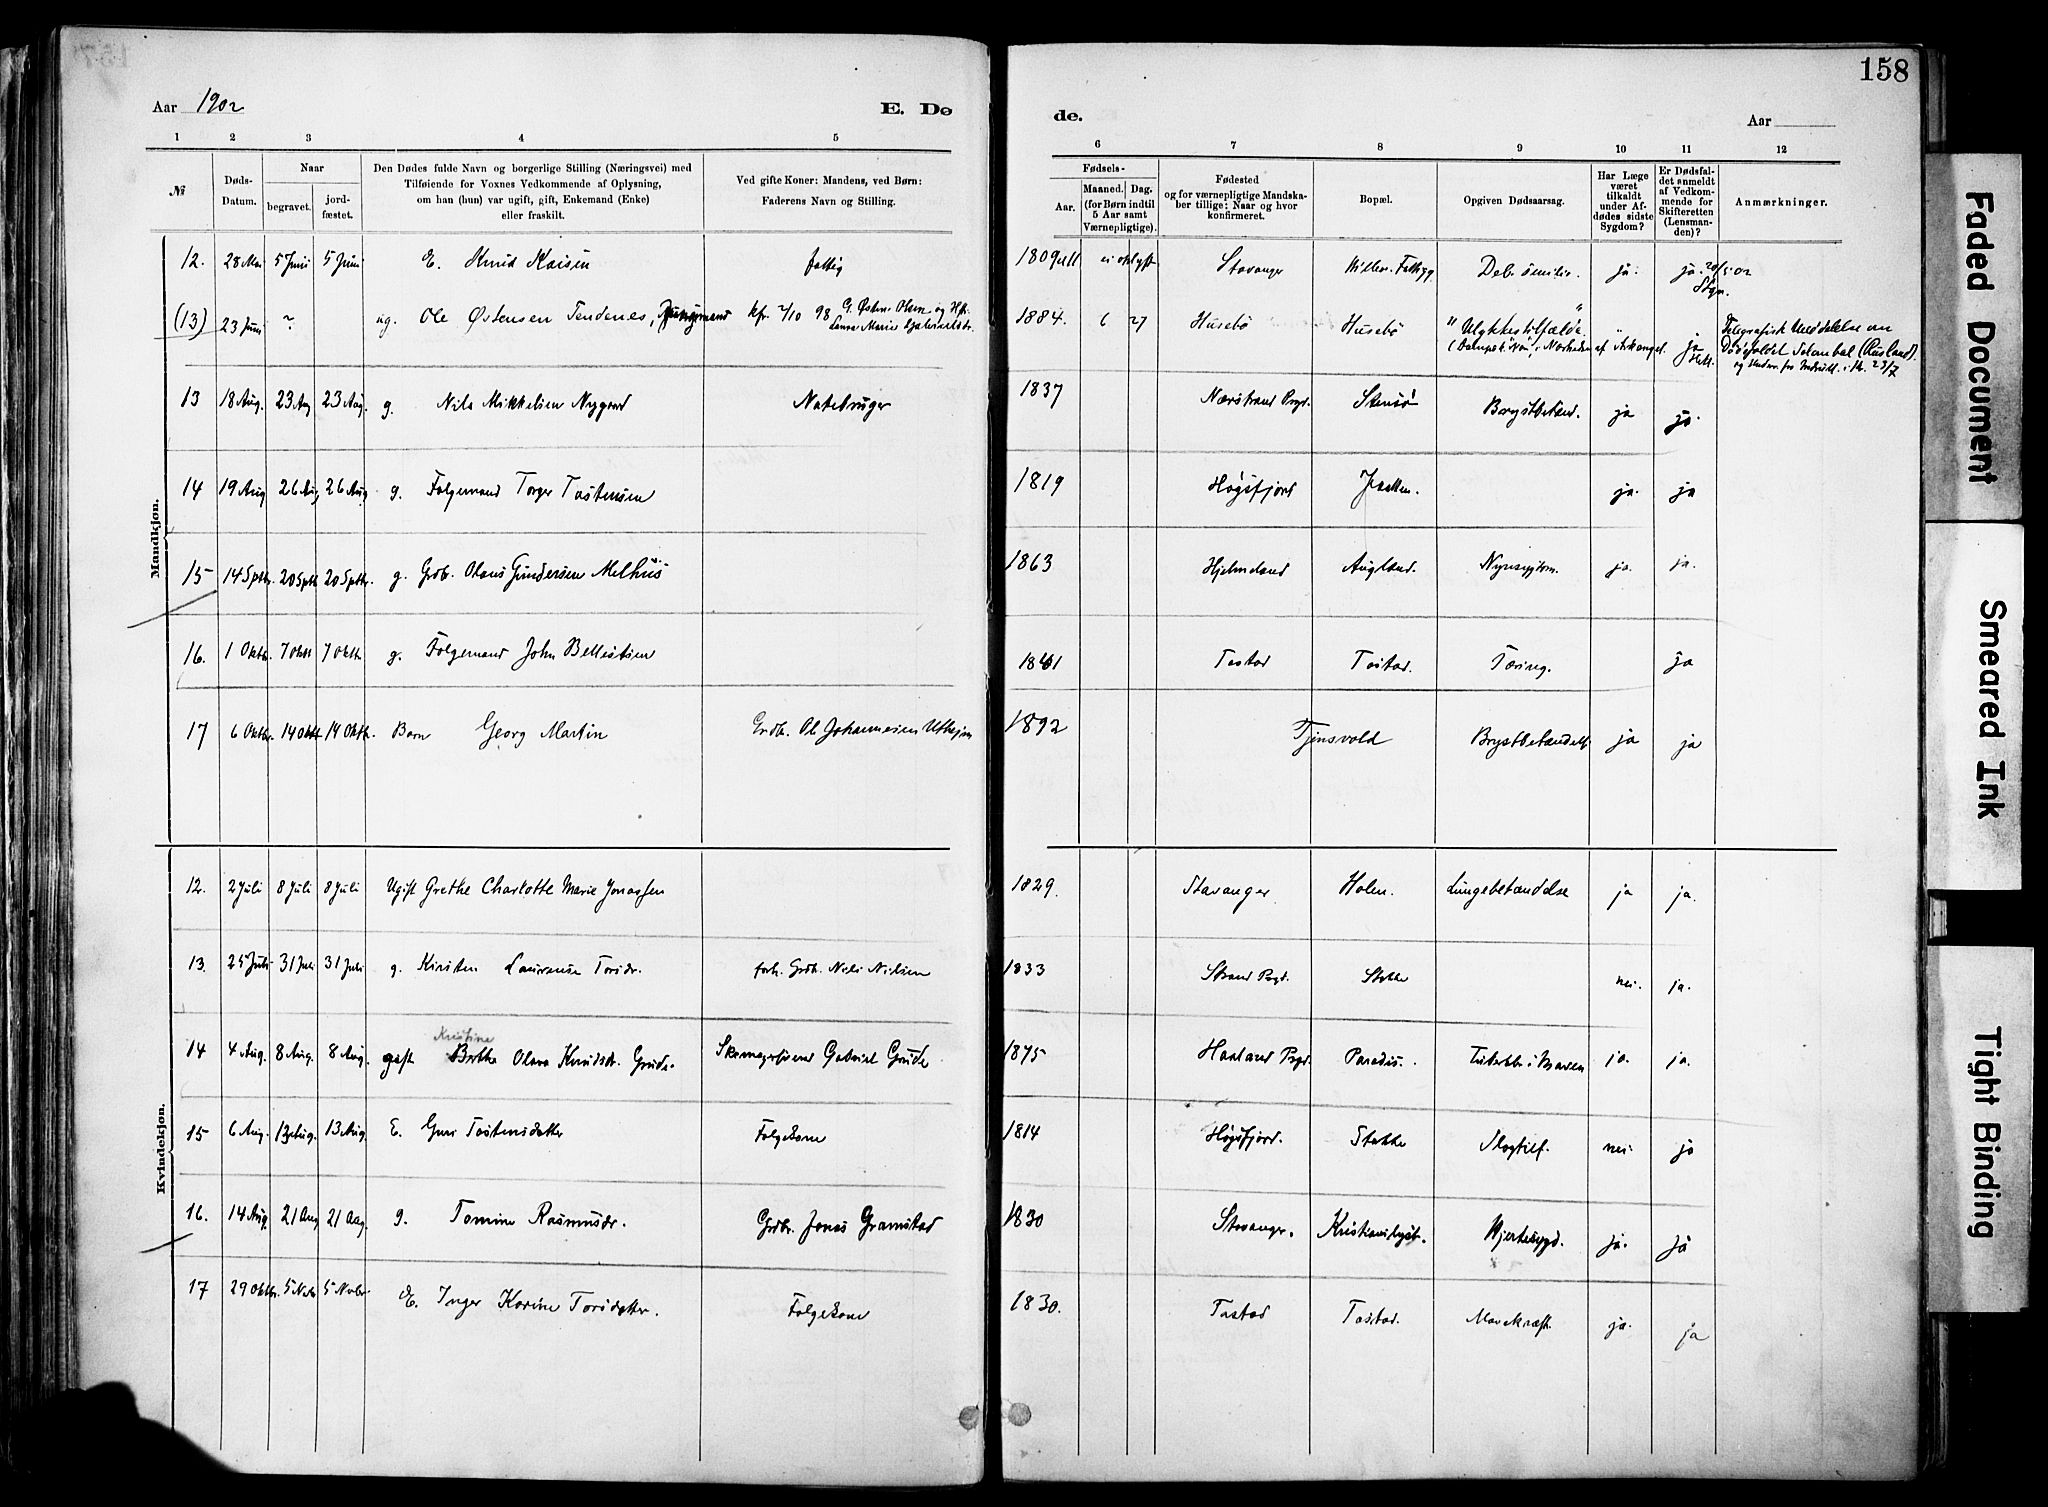 158
Aar 1902
E. Dø
de.
Aar
1 2 3 4 5
6 7 8 9 10 11 12
№
Døds-
Datum.
Naar
begravet.
jord-
fæstet.
Den Dødes fulde Navn og borgerlige Stilling (Næringsvei) med
Tilføiende for Voxnes Vedkommende af Oplysning,
om han (hun) var ugift, gift, Enkemand (Enke)
eller fraskilt.
Ved gifte Koner: Mandens, ved Børn:
Faderens Navn og Stilling.
Fødsels-
Aar.
Maaned. Dag.
(for Børn indtil
5 Aar samt
Værnepligtige).
Fødested
og for værnepligtige Mandska-
ber tillige: Naar og hvor
konfirmeret.
Bopæl.
Opgiven Dødsaarsag.
Har Læge
været
tilkaldt
under Af-
dødes sidste
Sygdom?
Er Dødsfal-
det anmeldt
af Vedkom-
mende for
Skifteretten
(Lensman-
den)?
Anmærkninger.
Mandkjøn.
12. 28 Mai 5 Juni 5 Juni E. Knud Kaisen fattig 1809 Stavanger ja. ja.
(13) 23 Juni ? ug. Ole Østensen Tendenes, Ungmand kfr. 2/10 98 G. Østen Olsen og H.
1884. 6 27 Husebø Husebø "Ulykkestilfælde" ja Telegrafisk Meddelelse om
Dødsfaldet (Rusland).
13 18 Aug. 23 Aug 23 Aug. g. Nils Mikkelsen Nygaard Notebruger 1837 Nærstrand Prgd. Stensø Brystbetænd. ja ja.
14 19 Aug 26 Aug 26 Aug. g. Folgemand Torger Tostensen 1819 Høgsfjord ja. ja
15 14 Sptb. 20 Sptb 20 Sptb. g. Grdb. Olaus Gundersen Melhus 1863 Hjelmeland Augland. Nyresygdom. ja. ja.
16. 1 Oktb. 7 Oktb 7 Oktb g. Folgemand John Bellestsen 1841 Tastad Tastad. Tæring. ja
17 6 Oktbr. 14 Oktb 14 Oktb. Barn Georg Martin Grdb. Ol. Johannesen 1892 Tjensvold Brystbetændelse ja ja
Kvindekjøn.
12. 2 Juli 8 Juli 8 Juli Ugift Grethe Charlotte Marie Jonassen 1829. Stavanger Holm. Lungebetændelse ja ja.
13. 25 Juli 31 Juli 31 Juli g. Kirsten Laurense Torsdr. forh. Grdb. Nils Nielsen 1833 Strand Prgd. Stokke nei. ja.
Kristine
14 4 Aug. 8 Aug. 8 Aug. gift Berthe Olava Knudsdr. Grude. Skomagersvend Gabriel Grude 1875 Haaland Prgd. Paradis. Tuberkler i Maven ja. ja.
15 6 Aug. 13 Aug. 13 Aug E. Guri Tostensdatter Folgekone 1814 Høgsfjord. Stokke Slagtilf. nei. ja
16. 14 Aug. 21 Aug 21 Aug. g. Tomine Rasmusdr. Grdbr. Jonas Gramstad 1830 Stavanger. Kristianslyst. Hjertesygd. ja. ja
17 29 Oktbr. 5 Novbr 5 Novbr. E. Inger Karine Torsdatter. Folgekone 1830. Tastad Tastad. Mavekræft ja. ja
Faded Document
Smeared Ink
Tight Binding